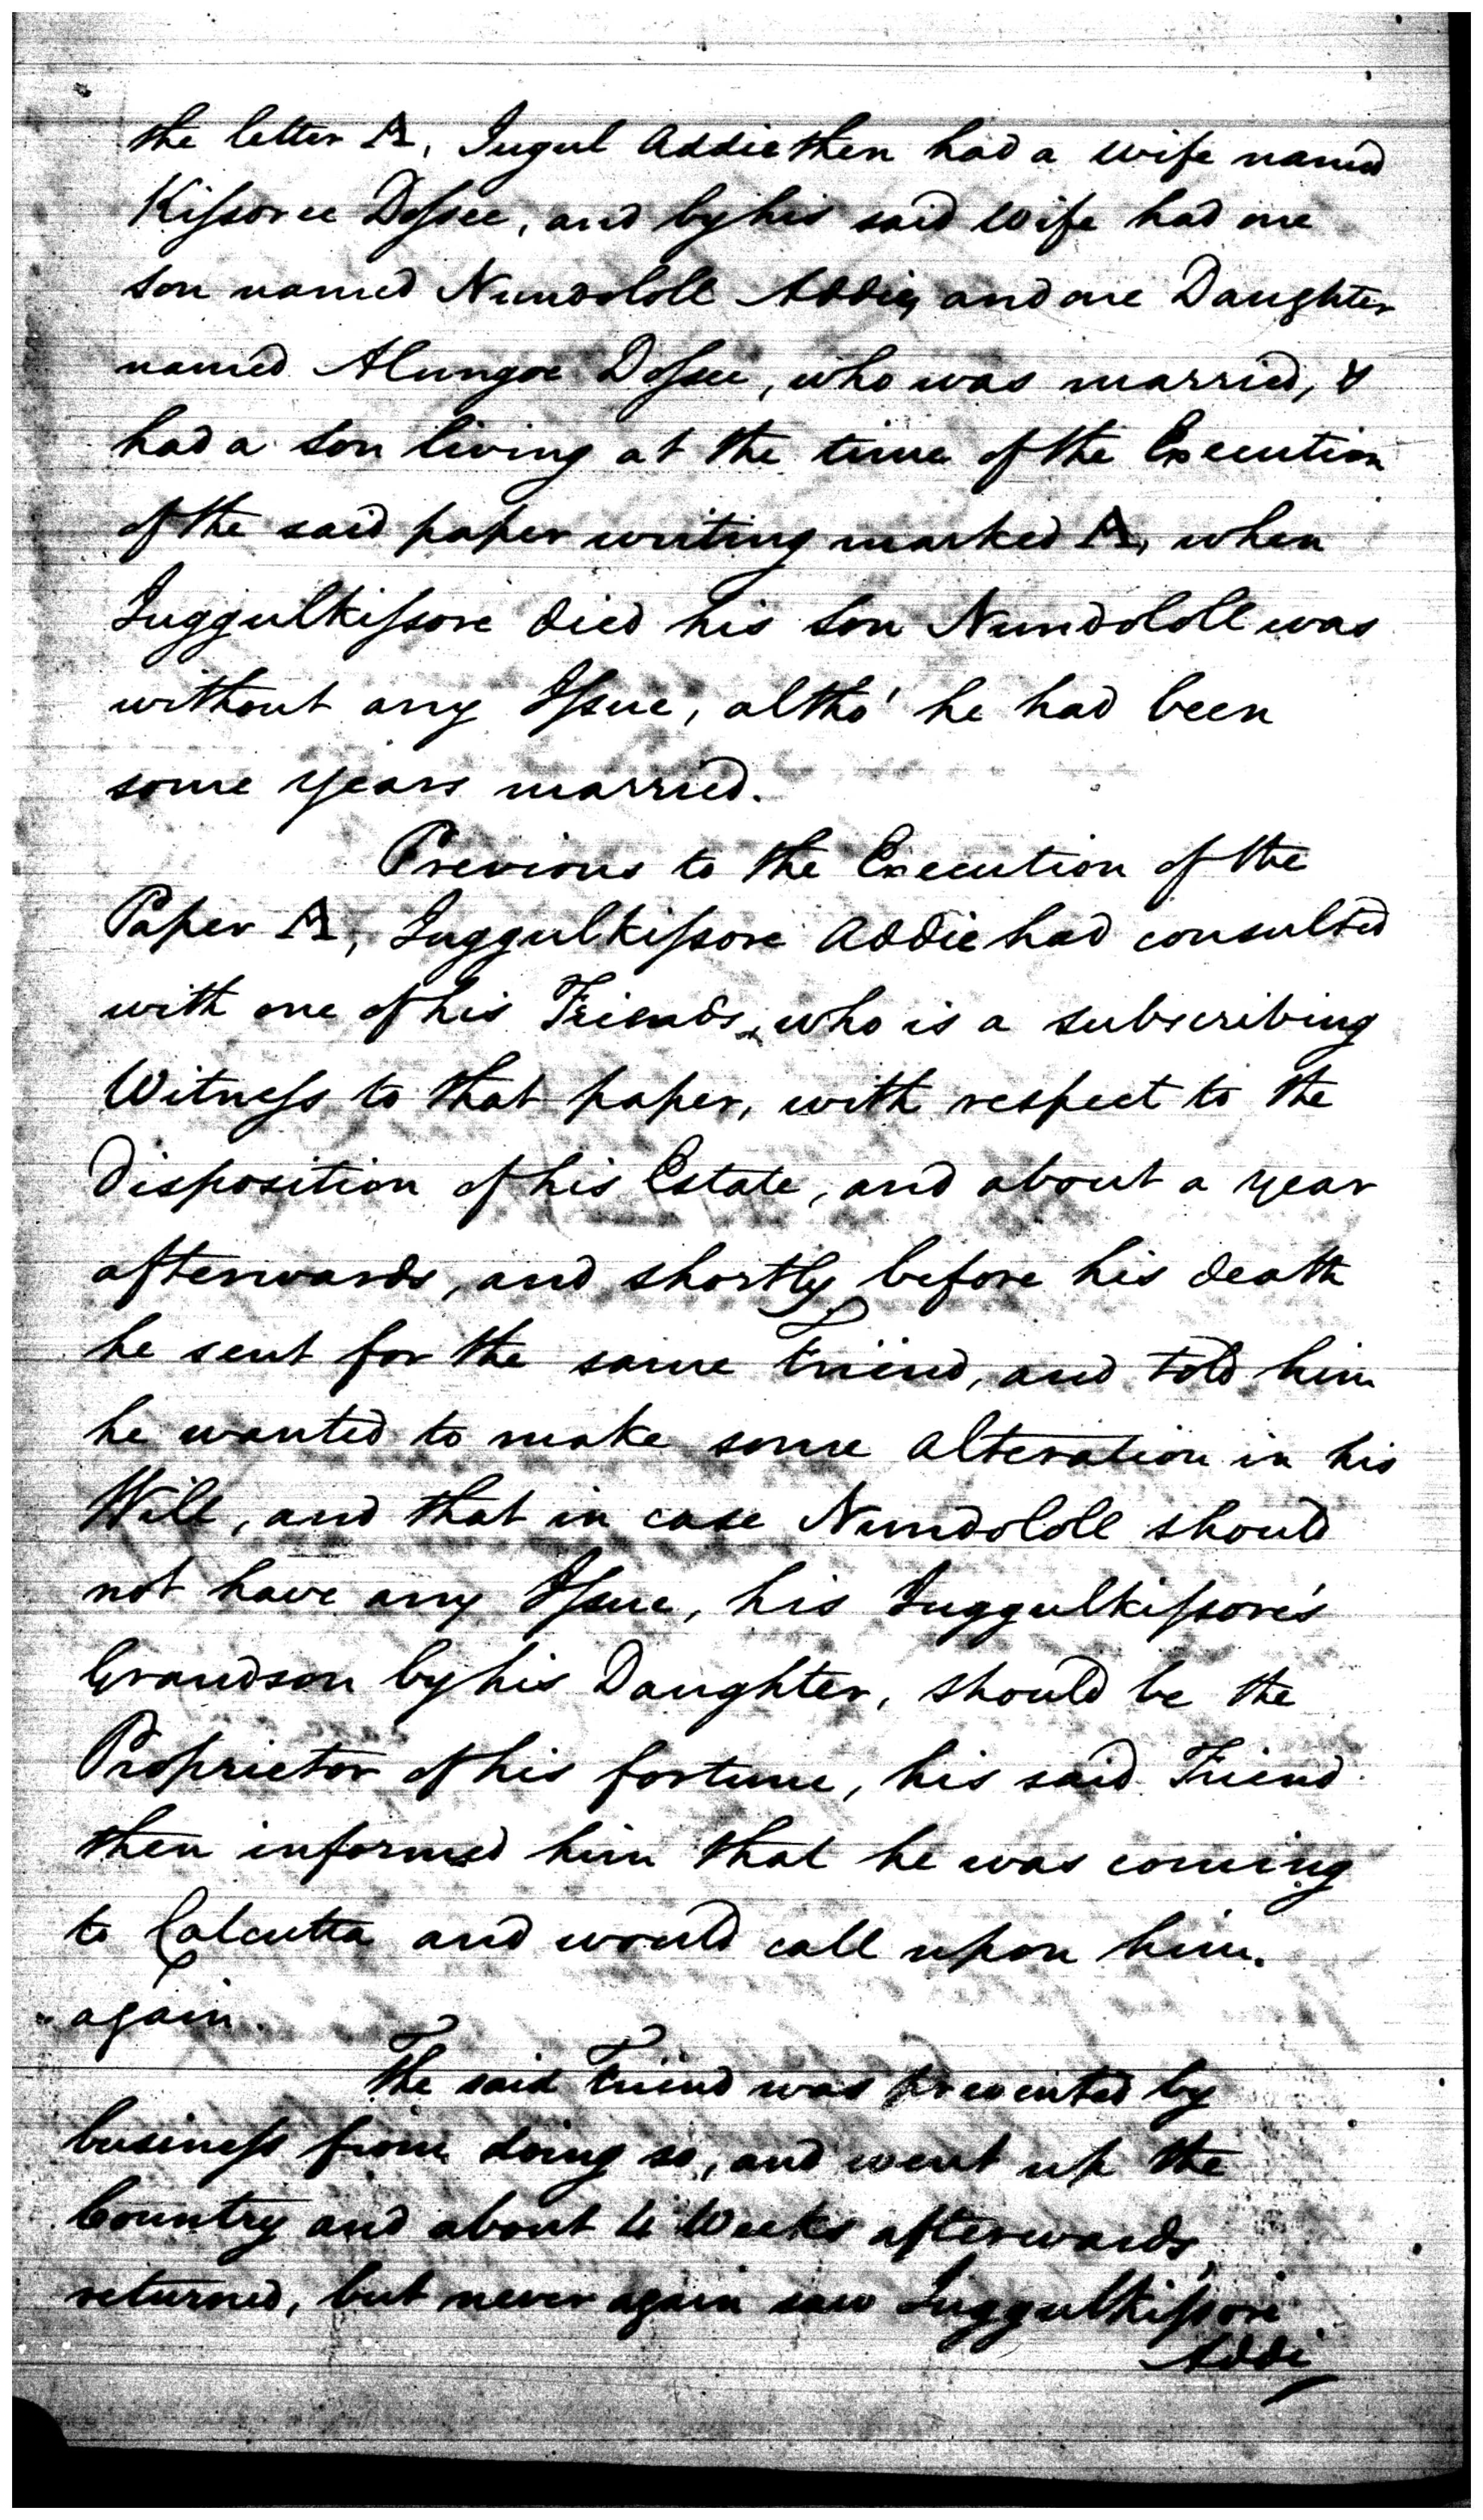 the letter A, Jugul Addie then had a wife named
Kissoree Dossee, and by his said Wife had one
son named Nundololl Addie, and one Daughter
named Alungoe Dossee, who was married, &
had a son living at the time of the Execution
of the said paper writing marked A, when
Juggulkissore died his son Nundololl was
without any Issue, altho' he had been
some years married.
Previous to the Execution of the
Paper A, Juggulkissore Addie had consulted
with one of his Friends, who is a subscribing
Witness to that paper, with respect to the
Disposition of his Estate, and about a year
afterwards, and shortly before his death
he sent for the same Friend, and told him
he wanted to make some alteration in his
Will, and that in case Nundololl should
not have any Issue, his Juggulkissore's
Grandson by his Daughter, should be the
Proprietor of his fortune, his said Friend
then informed him that he was coming
to Calcutta and would call upon him.
again.
The said Friend was prevented by
business from doing so, and went up the
Country and about 4 Weeks afterwards,
returned, but never again saw Juggulkissore
Addie